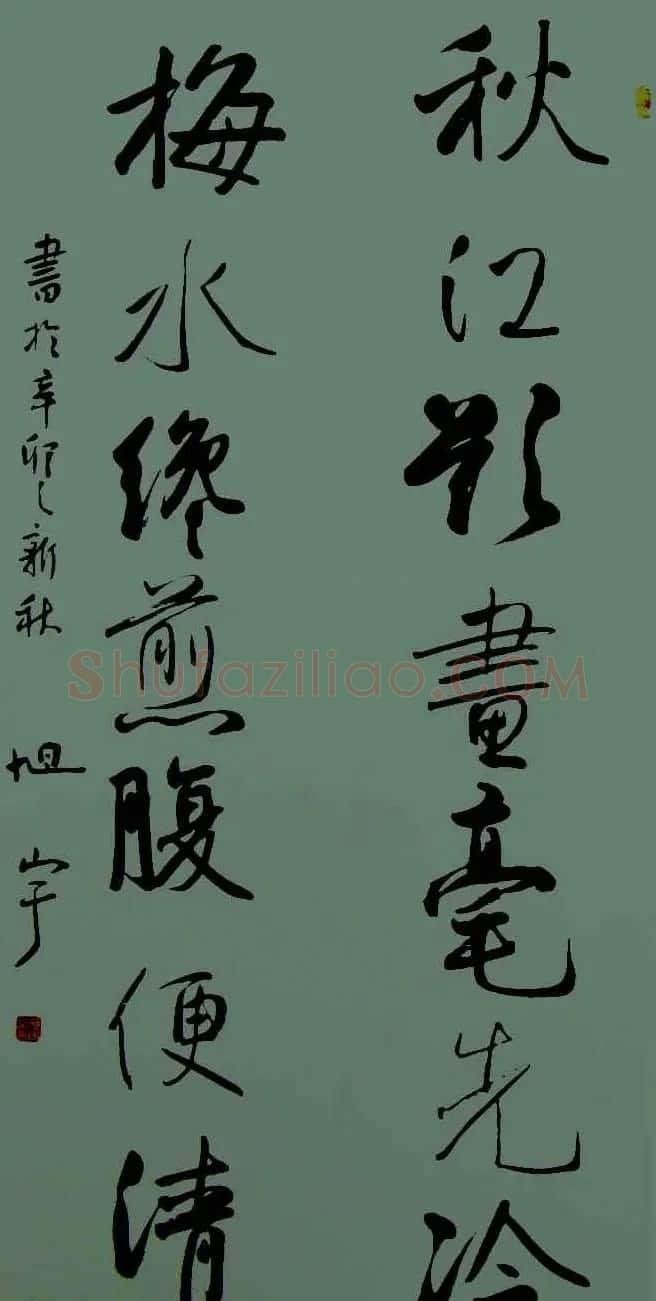 秋江欲畫毫先冷
梅水纔煎腹便清
書於辛卯之新秋
旭宇
Shufaziliao.COM